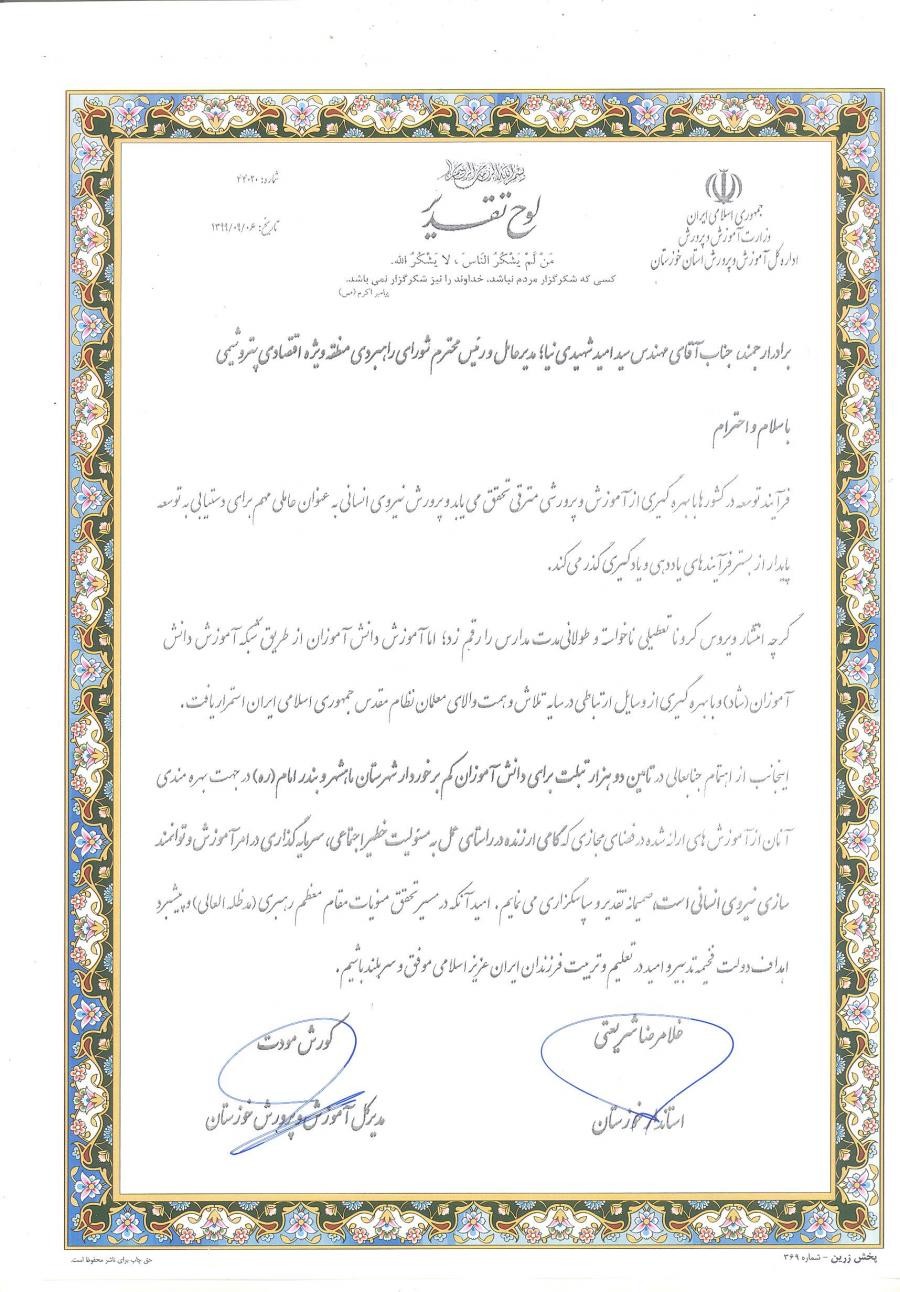 بسم الله الرحمن الرحیم
لوح تقدیر
جمهوری اسلامی ایران
وزارت آموزش و پرورش
اداره کل آموزش و پرورش استان خوزستان
شماره: ۴۴۰۲۰
تاریخ: ۱۳۹۹/۰۹/۰۶
مَنْ لَمْ یَشْکُرُ النَاسَ ، لا یَشْکُرُ الله.
کسی که شکرگزار مردم نباشد، خداوند را نیز شکرگزار نمی باشد.
پیامبر اکرم (ص)
برادر ارجمند، جناب آقای مهندس سید امید شهیدی نیا؛ مدیرعامل و رئیس محترم شورای راهبردی منطقه ویژه اقتصادی پتروشیمی
با سلام و احترام
فرآیند توسعه در کشورها با بهره گیری از آموزش و پرورشی مترقی تحقق می یابد و پرورش نیروی انسانی به عنوان عاملی مهم برای دستیابی به توسعه
پایدار از بستر فرآیندهای یاددهی و یادگیری گذر می کند.
گرچه انتشار ویروس کرونا تعطیلی ناخواسته و طولانی مدت مدارس را رقم زد؛ اما آموزش دانش آموزان از طریق شبکه آموزش دانش
آموزان (شاد) و با بهره گیری از وسایل ارتباطی در سایه تلاش و همت والای معلمان نظام مقدس جمهوری اسلامی ایران استمرار یافت.
اینجانب از اهتمام جنابعالی در تامین دو هزار تبلت برای دانش آموزان کم برخوردار شهرستان ماهشهر و بندر امام (ره) در جهت بهره مندی
آنان از آموزش های ارائه شده در فضای مجازی که گامی ارزنده در راستای عمل به مسئولیت خطیر اجتماعی، سرمایه گذاری در امر آموزش و توانمند
سازی نیروی انسانی است، صمیمانه تقدیر و سپاسگزاری می نمایم. امید آنکه در مسیر تحقق منویات مقام معظم رهبری (مدظله العالی) و پیشبرد
اهداف دولت فخیمه تدبیر و امید در تعلیم و تربیت فرزندان ایران عزیز اسلامی موفق و سربلند باشیم.
غلامرضا شریعتی
استاندار خوزستان
کورش مودت
مدیرکل آموزش و پرورش خوزستان
پخش زرین - شماره ۳۶۹
حق چاپ برای ناشر محفوظ است.